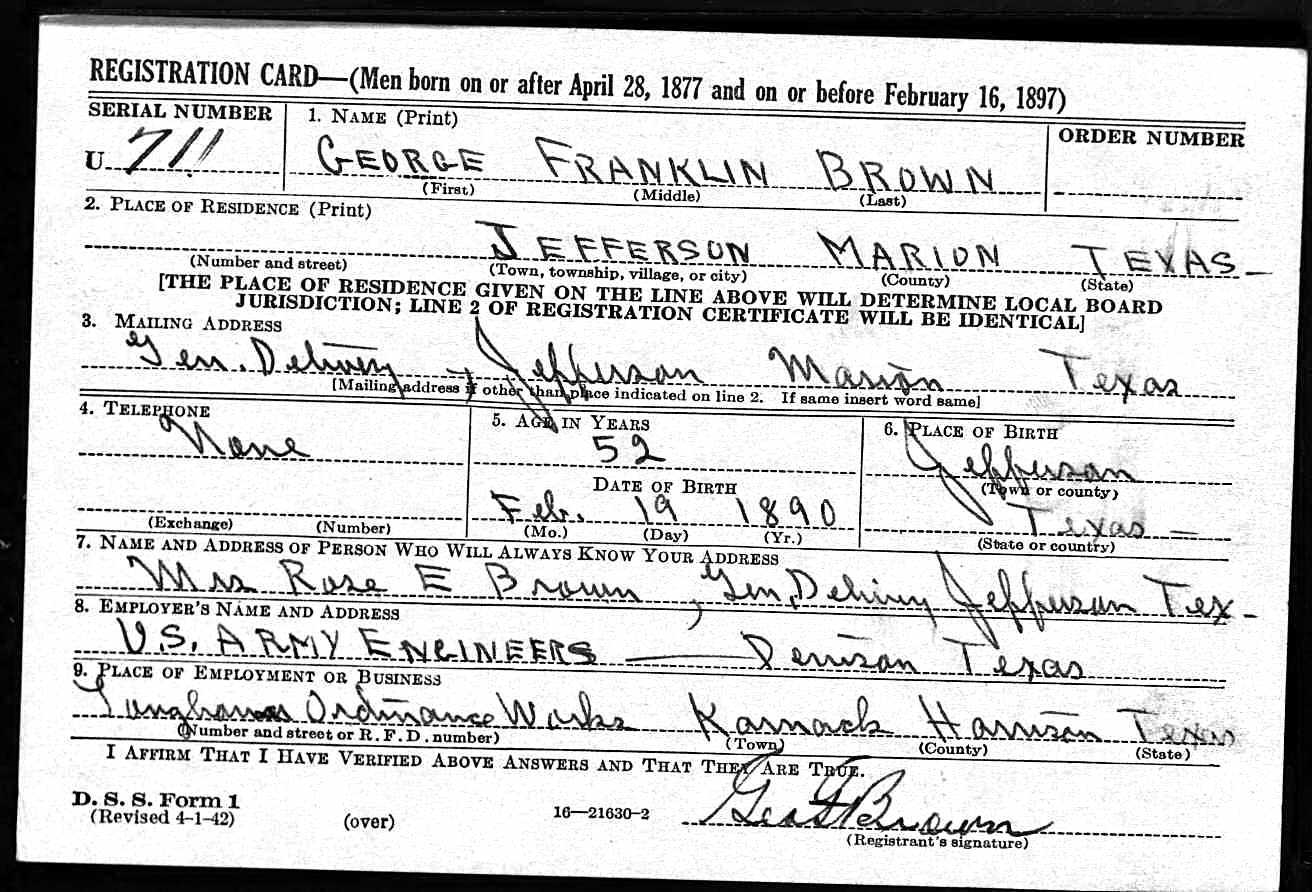 REGISTRATION CARD—(Men born on or after April 28, 1877 and on or before February 16, 1897)
SERIAL NUMBER
1. NAME (Print)
ORDER NUMBER
U 711
GEORGE FRANKLIN BROWN
(First) (Middle) (Last)
2. PLACE OF RESIDENCE (Print)
JEFFERSON MARION TEXAS
(Number and street) (Town, township, village, or city) (County) (State)
[THE PLACE OF RESIDENCE GIVEN ON THE LINE ABOVE WILL DETERMINE LOCAL BOARD
JURISDICTION; LINE 2 OF REGISTRATION CERTIFICATE WILL BE IDENTICAL]
3. MAILING ADDRESS
Gen. Delivery, Jefferson Marion Texas
[Mailing address if other than place indicated on line 2. If same insert word same]
4. TELEPHONE
None
(Exchange) (Number)
5. AGE IN YEARS
52
DATE OF BIRTH
Feb. 19 1890
(Mo.) (Day) (Yr.)
6. PLACE OF BIRTH
Jefferson
(Town or county)
Texas —
(State or country)
7. NAME AND ADDRESS OF PERSON WHO WILL ALWAYS KNOW YOUR ADDRESS
Mrs Rose E Brown, Gen. Delivery Jefferson Tex-
8. EMPLOYER'S NAME AND ADDRESS
U.S. ARMY ENGINEERS — Denison Texas
9. PLACE OF EMPLOYMENT OR BUSINESS
Ordinance Works Karnack Harrison Texas
(Number and street or R. F. D. number) (Town) (County) (State)
I AFFIRM THAT I HAVE VERIFIED ABOVE ANSWERS AND THAT THEY ARE TRUE.
D. S. S. Form 1
(Revised 4-1-42)
(over)
16—21630-2
Geo F Brown
(Registrant's signature)